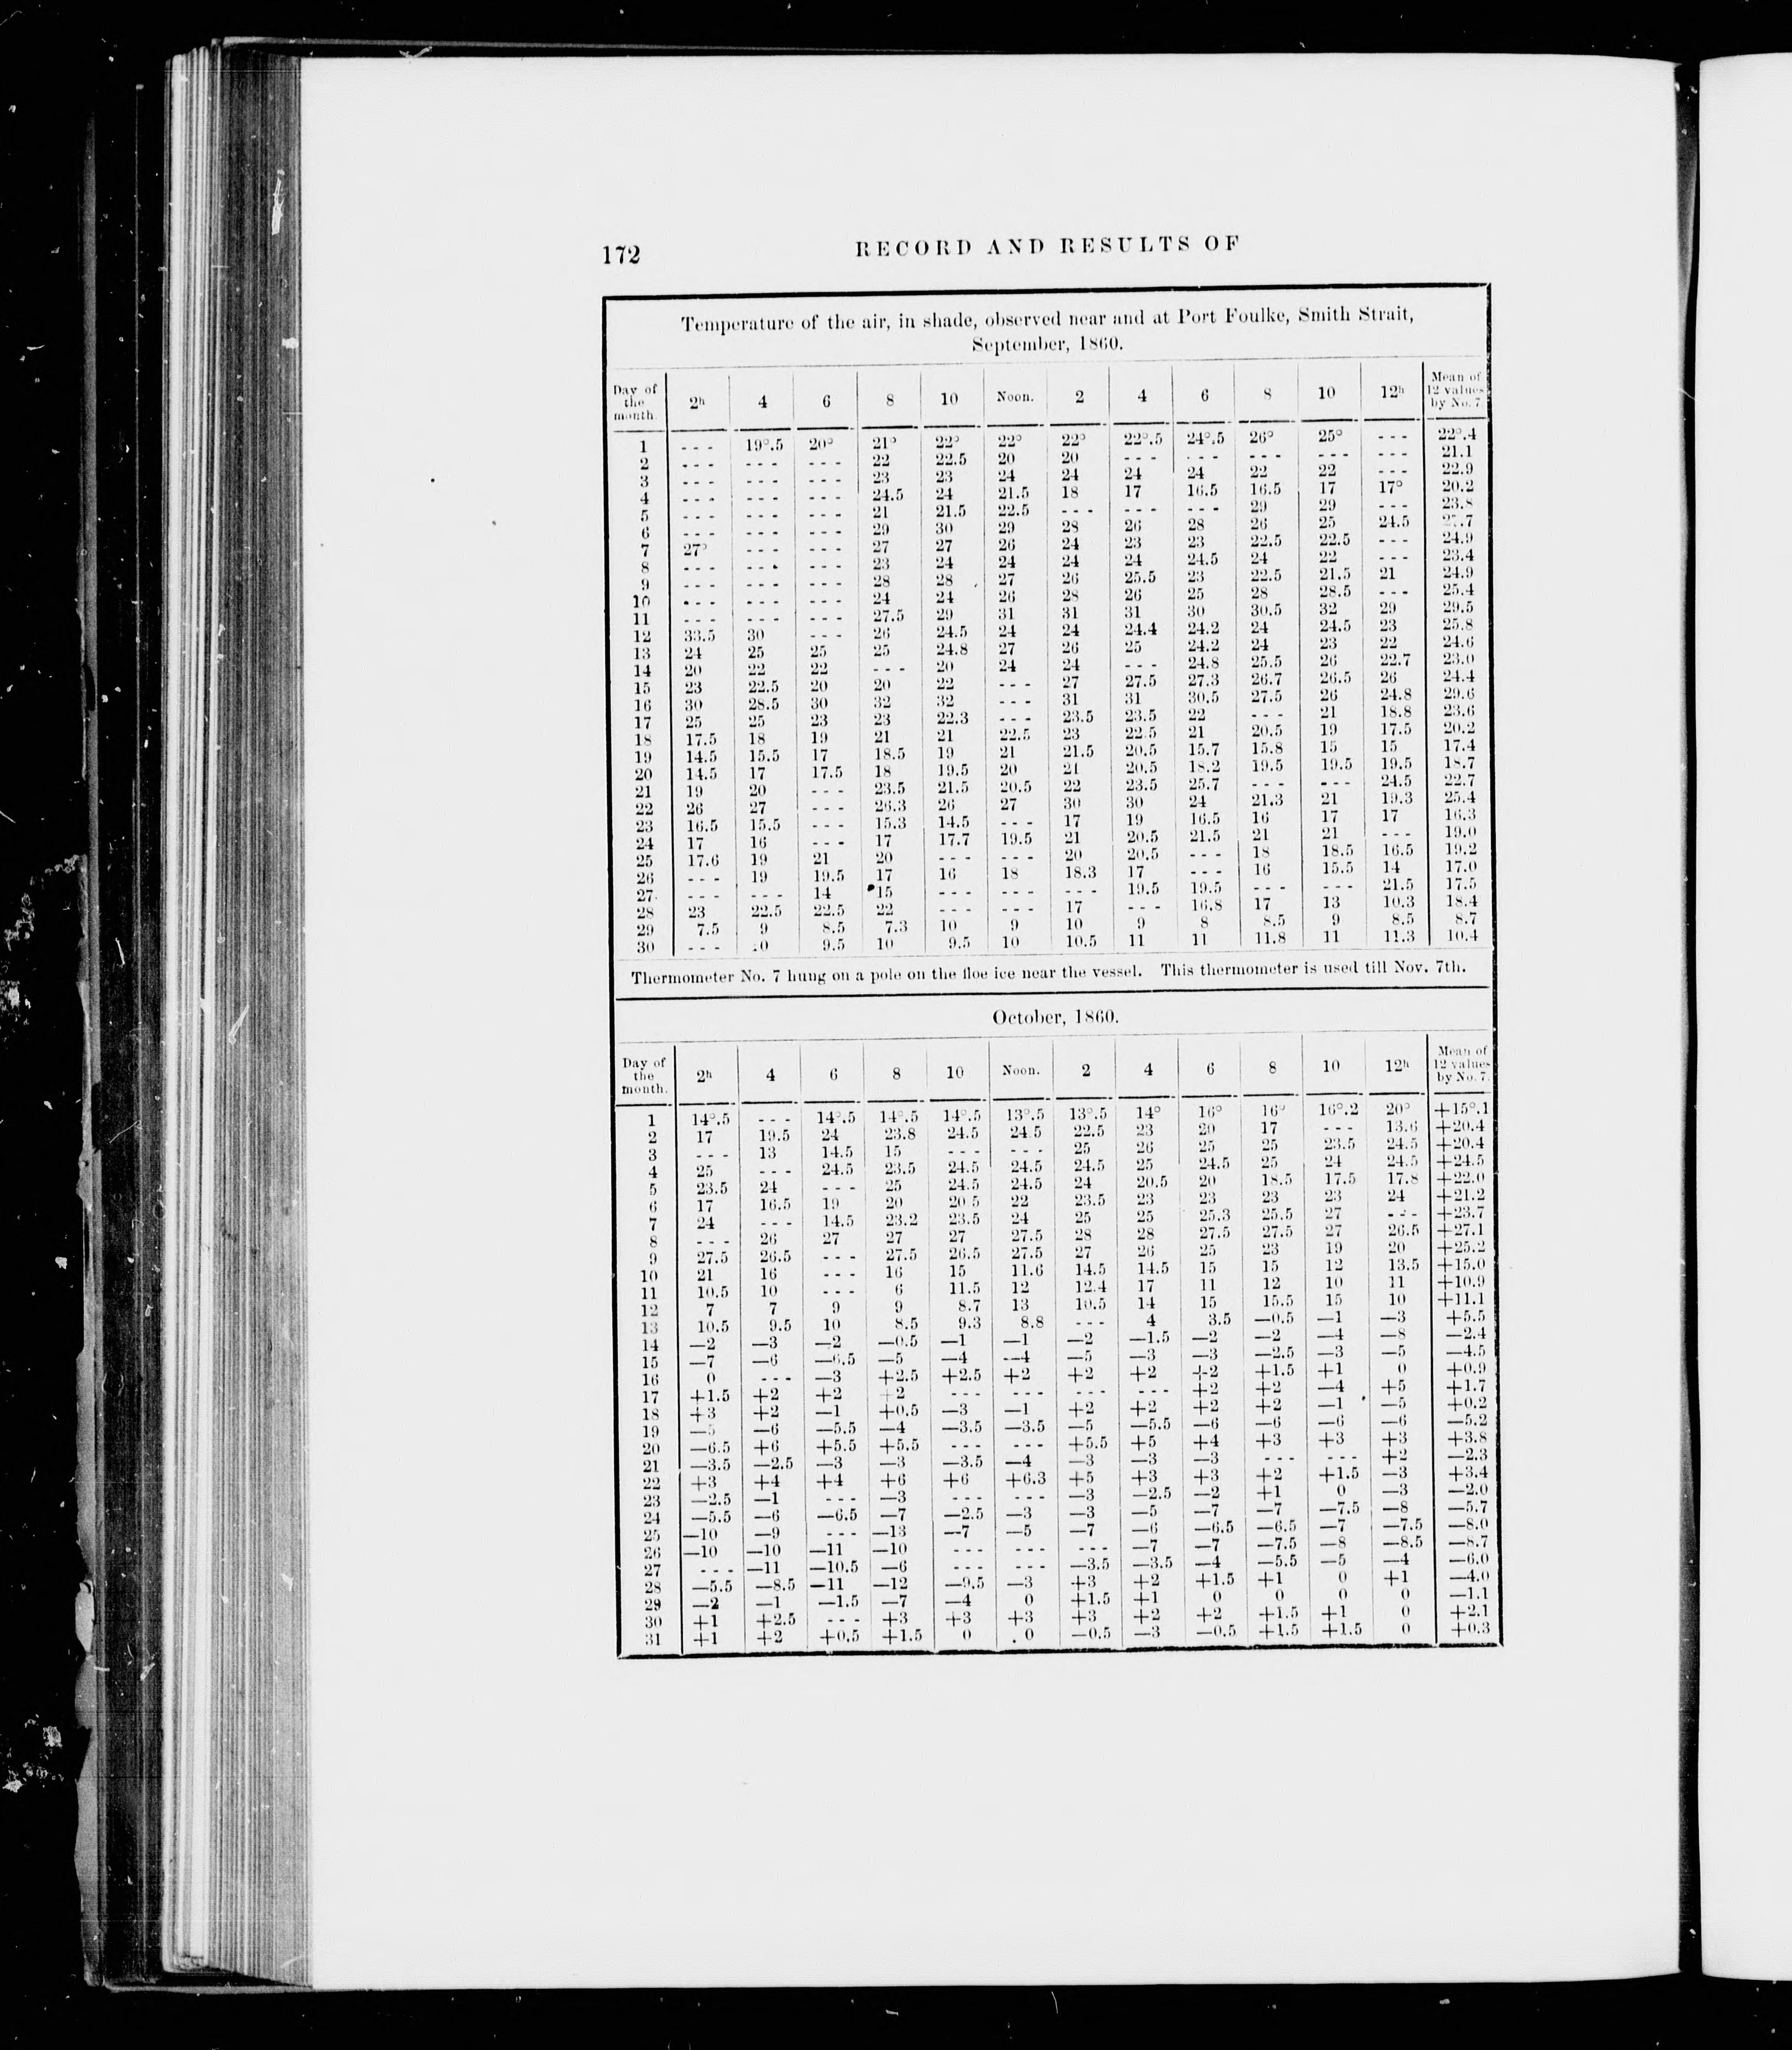 172 RECORD AND RESULTS OF
Temperature of the air, in shade, observed near and at Port Foulke, Smith Strait,
September, 1860.
Day of the month. 2h 4 6 8 10 Noon. 2 4 6 8 10 12h Mean of 12 values by No. 7.
1 - - - 19°.5 20° 21° 22° 22° 22° 22°.5 24°.5 26° 25° - - - 22°.4
2 - - - - - - - - - 22 22.5 20 20 - - - - - - - - - - - - - - - 21.1
3 - - - - - - - - - 23 23 24 24 24 24 22 22 - - - 22.9
4 - - - - - - - - - 24.5 24 21.5 18 17 16.5 16.5 17 17° 20.2
5 - - - - - - - - - 21 21.5 22.5 - - - - - - - - - 29 29 - - - 23.8
6 - - - - - - - - - 29 30 29 28 26 28 26 25 24.5
7 27° - - - - - - 27 27 26 24 23 23 22.5 22.5 - - - 24.9
8 - - - - - - - - - 23 24 24 24 24 24.5 24 22 - - - 23.4
9 - - - - - - - - - 28 28 27 26 25.5 23 22.5 21.5 21 24.9
10 - - - - - - - - - 24 24 26 28 26 25 28 28.5 - - - 25.4
11 - - - - - - - - - 27.5 29 31 31 31 30 30.5 32 29 29.5
12 33.5 30 - - - 26 24.5 24 24 24.4 24.2 24 24.5 23 25.8
13 24 25 25 25 24.8 27 26 25 24.2 24 23 22 24.6
14 20 22 22 - - - 20 24 24 - - - 24.8 25.5 26 22.7 23.0
15 23 22.5 20 20 22 - - - 27 27.5 27.3 26.7 26.5 26 24.4
16 30 28.5 30 32 32 - - - 31 31 30.5 27.5 26 24.8 29.6
17 25 25 23 23 22.3 - - - 23.5 23.5 22 - - - 21 18.8 23.6
18 17.5 18 19 21 21 22.5 23 22.5 21 20.5 19 17.5 20.2
19 14.5 15.5 17 18.5 19 21 21.5 20.5 15.7 15.8 15 15 17.4
20 14.5 17 17.5 18 19.5 20 21 20.5 18.2 19.5 19.5 19.5 18.7
21 19 20 - - - 23.5 21.5 20.5 22 23.5 25.7 - - - - - - 24.5 22.7
22 26 27 - - - 26.3 26 27 30 30 24 21.3 21 19.3 25.4
23 16.5 15.5 - - - 15.3 14.5 - - - 17 19 16.5 16 17 17 16.3
24 17 16 - - - 17 17.7 19.5 21 20.5 21.5 21 21 - - - 19.0
25 17.6 19 21 20 - - - - - - 20 20.5 - - - 18 18.5 16.5 19.2
26 - - - 19 19.5 17 16 18 18.3 17 - - - 16 15.5 14 17.0
27 - - - - - - 14 15 - - - - - - - - - 19.5 19.5 - - - - - - 21.5 17.5
28 23 22.5 22.5 22 - - - - - - 17 - - - 16.8 17 13 10.3 18.4
29 7.5 9 8.5 7.3 10 9 10 9 8 8.5 9 8.5 8.7
30 - - - 9.5 10 9.5 10 10.5 11 11 11.8 11 11.3 10.4
Thermometer No. 7 hung on a pole on the floe ice near the vessel. This thermometer is used till Nov. 7th.
October, 1860.
Day of the month. 2h 4 6 8 10 Noon. 2 4 6 8 10 12h Mean of 12 values by No. 7.
1 14°.5 - - - 14°.5 14°.5 14°.5 13°.5 13°.5 14° 16° 16° 16°.2 20° +15°.1
2 17 19.5 24 23.8 24.5 24.5 22.5 23 20 17 - - - 13.6 +20.4
3 - - - 13 14.5 15 - - - - - - 25 26 25 25 23.5 24.5 +20.4
4 25 - - - 24.5 23.5 24.5 24.5 24.5 25 24.5 25 24 24.5 +24.5
5 23.5 24 - - - 25 24.5 24.5 24 20.5 20 18.5 17.5 17.8 +22.0
6 17 16.5 19 20 20.5 22 23.5 23 23 23 23 24 +21.2
7 24 - - - 14.5 23.2 23.5 24 25 25 25.3 25.5 27 - - - +23.7
8 - - - 26 27 27 27 27.5 28 28 27.5 27.5 27 26.5 +27.1
9 27.5 26.5 - - - 27.5 26.5 27.5 27 26 25 23 19 20 +25.2
10 21 16 - - - 16 15 11.6 14.5 14.5 15 15 12 13.5 +15.0
11 10.5 10 - - - 6 11.5 12 12.4 17 11 12 10 11 +10.9
12 7 7 9 9 8.7 13 10.5 14 15 15.5 15 10 +11.1
13 10.5 9.5 10 8.5 9.3 8.8 - - - 4 3.5 —0.5 —1 —3 +5.5
14 —2 —3 —2 —0.5 —1 —1 —2 —1.5 —2 —2 —4 —8 —2.4
15 —7 —6 —6.5 —5 —4 —4 —5 —3 —3 —2.5 —3 —5 —4.5
16 0 - - - —3 +2.5 +2.5 +2 +2 +2 +2 +1.5 +1 0 +0.9
17 +1.5 +2 +2 +2 - - - - - - - - - - - - +2 +2 —4 +5 +1.7
18 +3 +2 —1 +0.5 —3 —1 +2 +2 +2 +2 —1 —5 +0.2
19 —5 —6 —5.5 —4 —3.5 —3.5 —5 —5.5 —6 —6 —6 —6 —5.2
20 —6.5 +6 +5.5 +5.5 - - - - - - +5.5 +5 +4 +3 +3 +3 +3.8
21 —3.5 —2.5 —3 —3 —3.5 —4 —3 —3 —3 - - - - - - +2 —2.3
22 +3 +4 +4 +6 +6 +6.3 +5 +3 +3 +2 +1.5 —3 +3.4
23 —2.5 —1 - - - —3 - - - - - - —3 —2.5 —2 +1 0 —3 —2.0
24 —5.5 —6 —6.5 —7 —2.5 —3 —3 —5 —7 —7 —7.5 —8 —5.7
25 —10 —9 - - - —13 —7 —5 —7 —6 —6.5 —6.5 —7 —7.5 —8.0
26 —10 —10 —11 —10 - - - - - - - - - —7 —7 —7.5 —8 —8.5 —8.7
27 - - - —11 —10.5 —6 - - - - - - —3.5 —3.5 —4 —5.5 —5 —4 —6.0
28 —5.5 —8.5 —11 —12 —9.5 —3 +3 +2 +1.5 +1 0 +1 —4.0
29 —2 —1 —1.5 —7 —4 0 +1.5 +1 0 0 0 0 —1.1
30 +1 +2.5 - - - +3 +3 +3 +3 +2 +2 +1.5 +1 0 +2.1
31 +1 +2 +0.5 +1.5 0 0 —0.5 —3 —0.5 +1.5 +1.5 0 +0.3